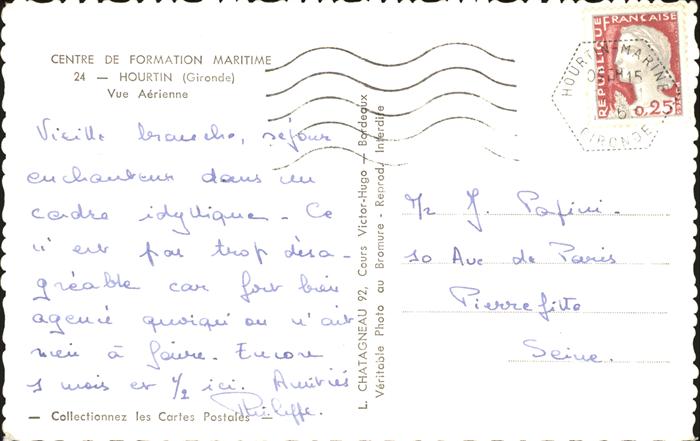 CENTRE DE FORMATION MARITIME
24 — HOURTIN (Gironde)
Vue Aérienne
Vieille branche, séjour
enchanteur dans un
cadre idyllique - Ce
n'est pas trop désa-
gréable car fort bien
agencé quoiqu'on n'ait
rien à faire. Encore
1 mois et 1/2 ici. Amitiés
Philippe.
— Collectionnez les Cartes Postales —
L. CHATAGNEAU 92, Cours Victor-Hugo — Bordeaux
Véritable Photo au Bromure - Reprod. Interdite
REPUBLIQUE FRANÇAISE
0,25
HOURTIN-MARINE
GIRONDE
J. Papini -
10 Ave de Paris
Pierrefitte
Seine.